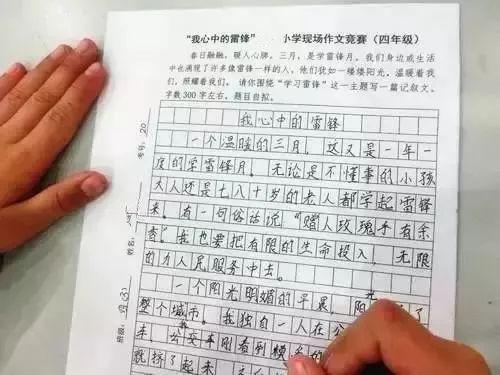 “我心中的雷锋” 小学现场作文竞赛(四年级)
春日融融,暖人心脾。三月,是学雷锋月。我们身边或生活
中也涌现了许多像雷锋一样的人,他们犹如一缕缕阳光,温暖着我
们,照耀着我们。请你围绕“学习雷锋”这一主题写一篇记叙文。
字数300字左右,题目自拟。
我心中的雷锋
一个温暖的三月,这又是一年一
度的学雷锋月。无论是不懂事的小孩
大人还是七八十岁的老人都学起雷锋
来。有一句俗话说,“赠人玫瑰手有余
香”我也要把有限的生命投入,无限
的为人民服务中去。
一个阳光明媚的早晨,阳光了
整个城市。我独自一人在公
车,公交车刚看到模
就挤了起来
考号:20
姓名:
班级:四(3)